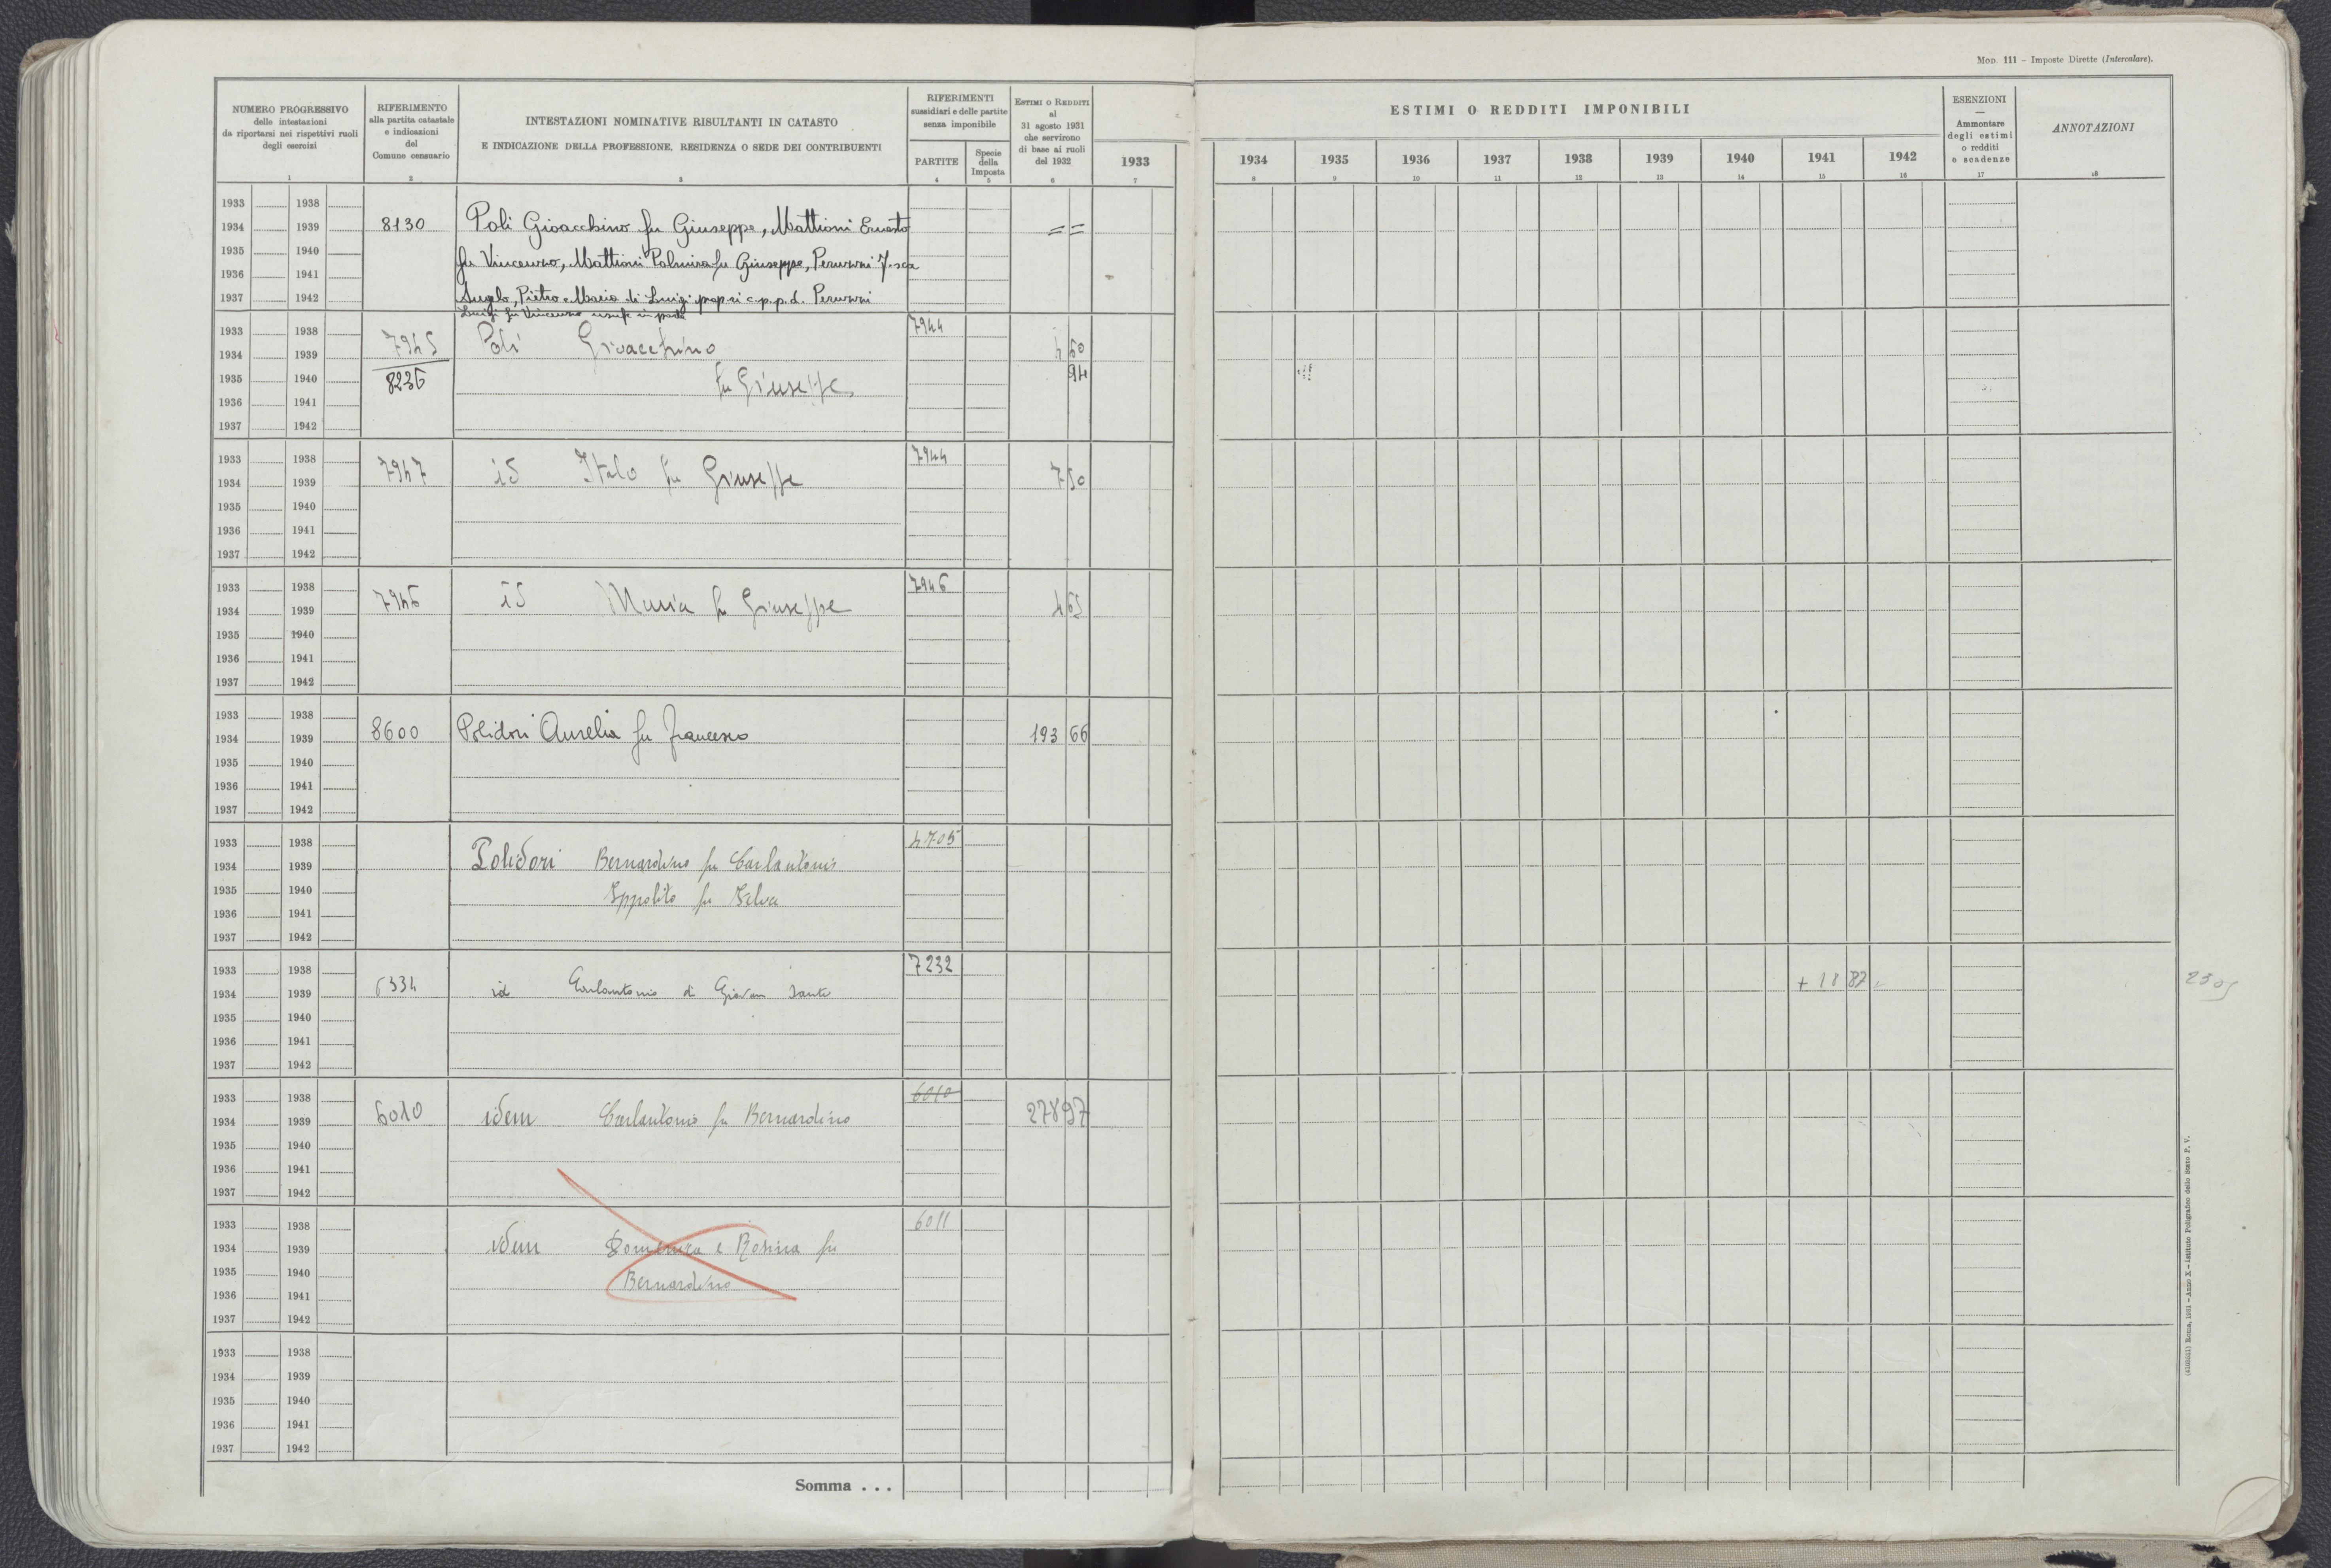 Mod. 111 – Imposte Dirette (Intercalare).
NUMERO PROGRESSIVO
delle intestazioni
da riportarsi nei rispettivi ruoli
degli esercizi
1
RIFERIMENTO
alla partita catastale
e indicazioni
del
Comune censuario
2
INTESTAZIONI NOMINATIVE RISULTANTI IN CATASTO
E INDICAZIONE DELLA PROFESSIONE, RESIDENZA O SEDE DEI CONTRIBUENTI
3
RIFERIMENTI
sussidiari e delle partite
senza imponibile
PARTITE
4
Specie
della
Imposta
5
Estimi o Redditi
al
31 agosto 1931
che servirono
di base ai ruoli
del 1932
6
ESTIMI O REDDITI IMPONIBILI
1933 1934 1935 1936 1937 1938 1939 1940 1941 1942
7 8 9 10 11 12 13 14 15 16
ESENZIONI
—
Ammontare
degli estimi
o redditi
e scadenze
17
ANNOTAZIONI
18
1933 1938
1934 1939 8130 Poli Gioacchino fu Giuseppe, Mattioni Ernesto ==
1935 1940 fu Vincenzo, Mattioni Palmira fu Giuseppe,
1936 1941
1937 1942 Angelo, Pietro e Maria di Luigi propri c.p.p.d.
Luigi fu Vincenzo usuf. in parte
1933 1938 7944
1934 1939 7945 Poli Gioacchino 4 60
1935 1940 8236 fu Giuseppe 94
1936 1941
1937 1942
1933 1938 7944
1934 1939 7947 id Italo fu Giuseppe 7 50
1935 1940
1936 1941
1937 1942
1933 1938 7946
1934 1939 7946 id Maria fu Giuseppe 4 65
1935 1940
1936 1941
1937 1942
1933 1938
1934 1939 8600 Polidori Aurelia fu Francesco 193 66
1935 1940
1936 1941
1937 1942
1933 1938 4705
1934 1939 Polidori Bernardino fu Carlantonio
1935 1940 Ippolito fu Silva
1936 1941
1937 1942
1933 1938 7232
1934 1939 6334 id Carlantonio di Giovan Sante + 18 87 23 05
1935 1940
1936 1941
1937 1942
1933 1938 6010
1934 1939 6010 idem Carlantonio fu Bernardino 278 97
1935 1940
1936 1941
1937 1942
1933 1938 6011
1934 1939 idem Domenica e Rosina fu
1935 1940 Bernardino
1936 1941
1937 1942
1933 1938
1934 1939
1935 1940
1936 1941
1937 1942
Somma . . .
Roma, 1931 – Anno X – Istituto Poligrafico dello Stato P. V.